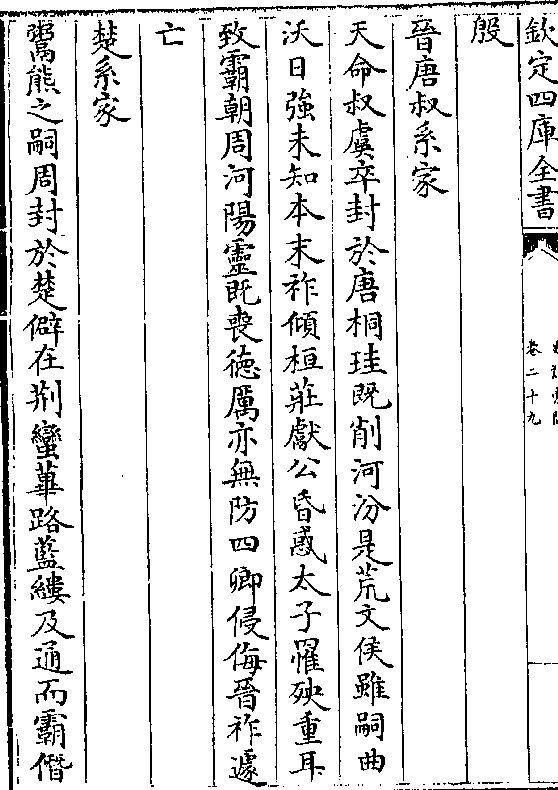 欽定四庫全書
卷二十九
殷
晉唐叔系家
天命叔虞卒封於唐桐珪既削河汾是荒文侯雖嗣曲
沃日強未知本末祚傾桓莊獻公昏惑太子罹殃重耳
致霸朝周河陽靈既喪德厲亦無防四卿侵侮晉祚遽
亡
楚系家
鬻熊之嗣周封於楚僻在荆蠻蓽路藍縷及通而霸僭